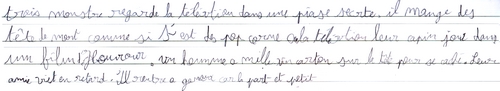 trois monstre regarde la télértion dans une piase sorte. il mange des
tête de mort comme si s'est des pop corne a la télértion leur copin joue dans
un film d'houvrour. un homme a mille un carton sur la tête pour se caché. Leur
amie vient en retard. Il rentre a car la part et petit